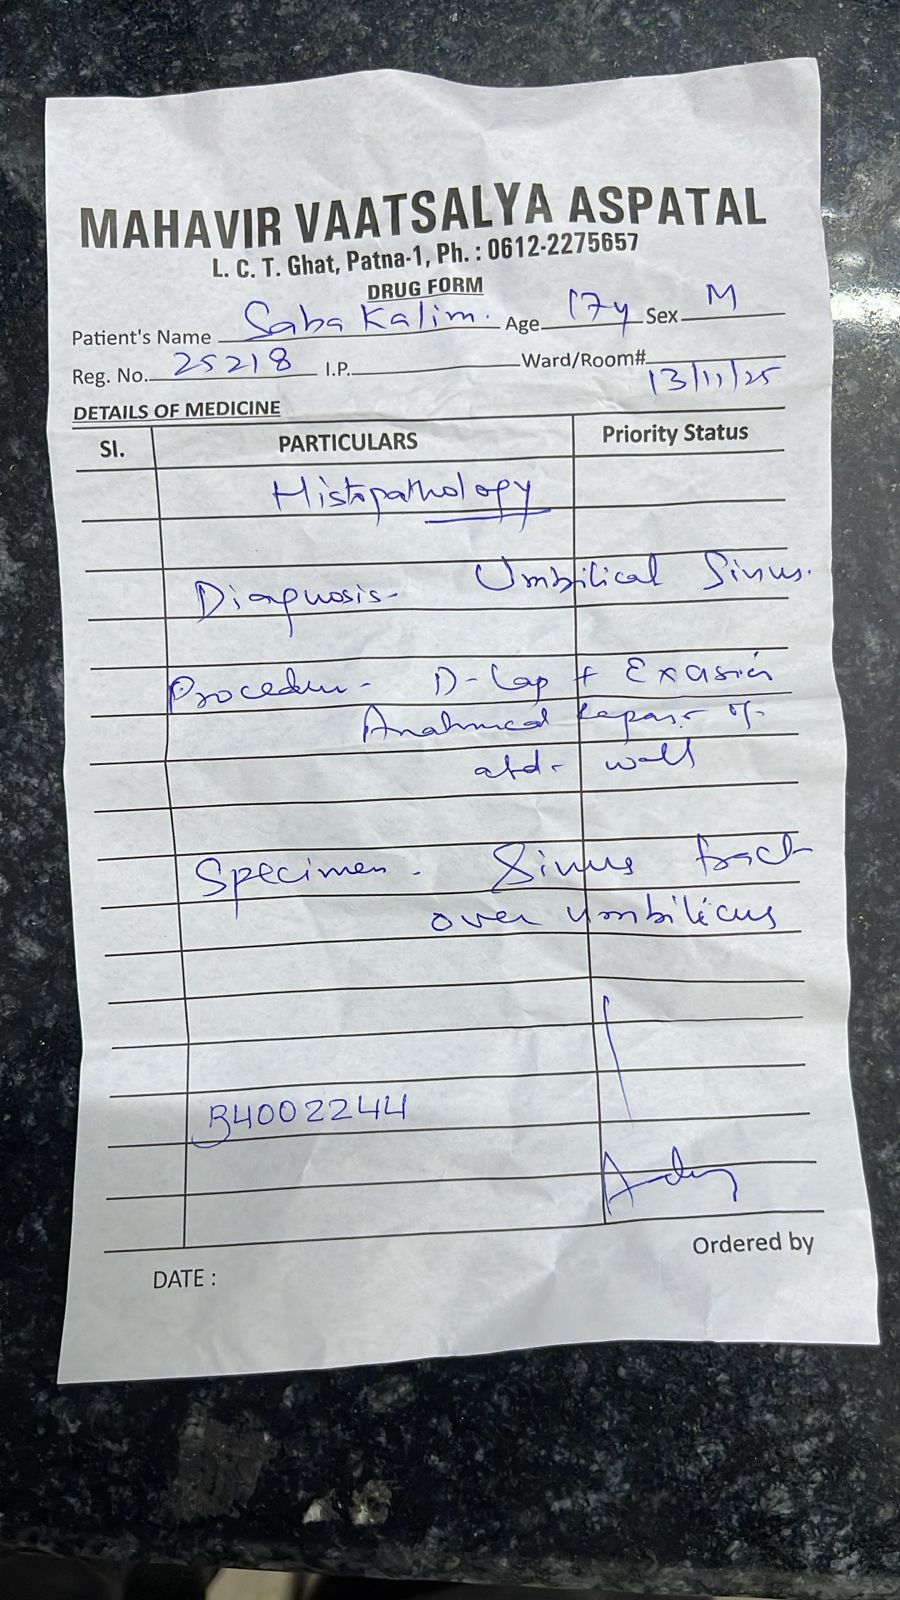 MAHAVIR VAATSALYA ASPATAL
L. C. T. Ghat, Patna-1, Ph. : 0612-2275657
DRUG FORM
Patient's Name Saba Kalim. Age 17y Sex M
Reg. No. 25218 I.P. Ward/Room#
13/11/25
DETAILS OF MEDICINE
Sl. PARTICULARS Priority Status
Histopathology
Diagnosis- Umbilical Sinus.
Procedure- D-Lap + Exasion
Anatomical Repair of
abd- wall
Specimen - Sinus tract
over umbilicus
B4002244
Ordered by
DATE :